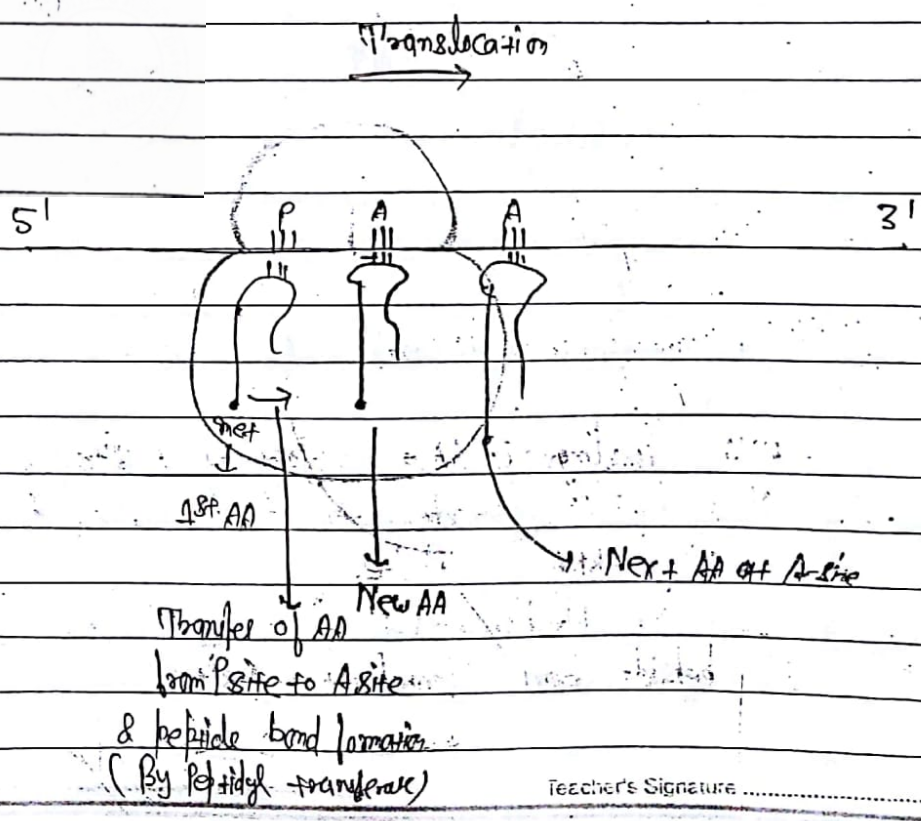 Translocation
5' P A A 3'
met
1st AA
Next AA at A-site
New AA
Transfer of AA
from P site to A site
& peptide bond formation
(By Peptidyl transferase)
Teacher's Signature ........................